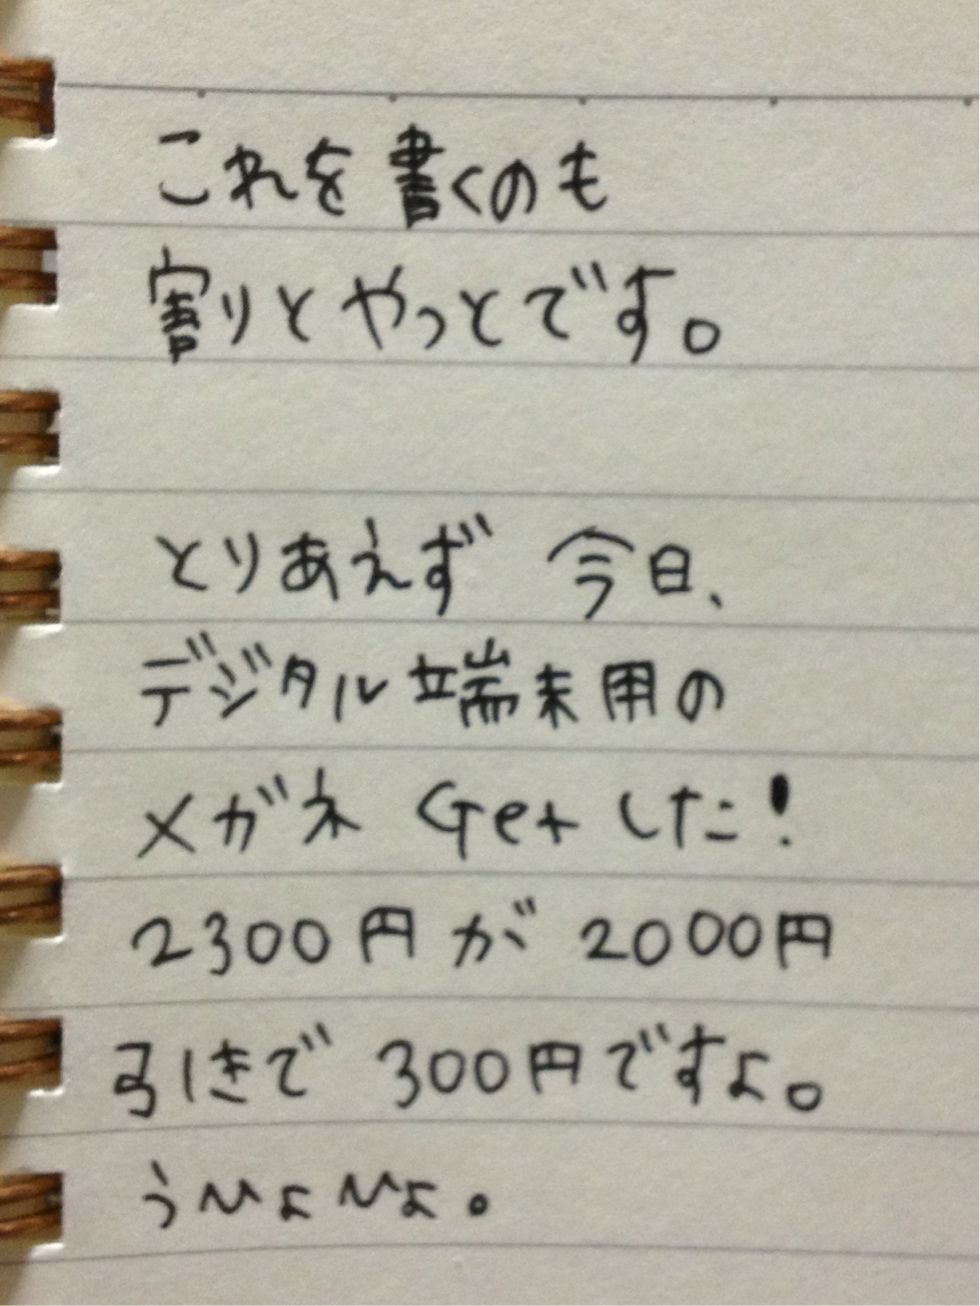 これを書くのも
割りとやっとです。
とりあえず 今日、
デジタル端末用の
メガネ Getした!
2300円が 2000円
引きで 300円ですよ。
うひょひょ。